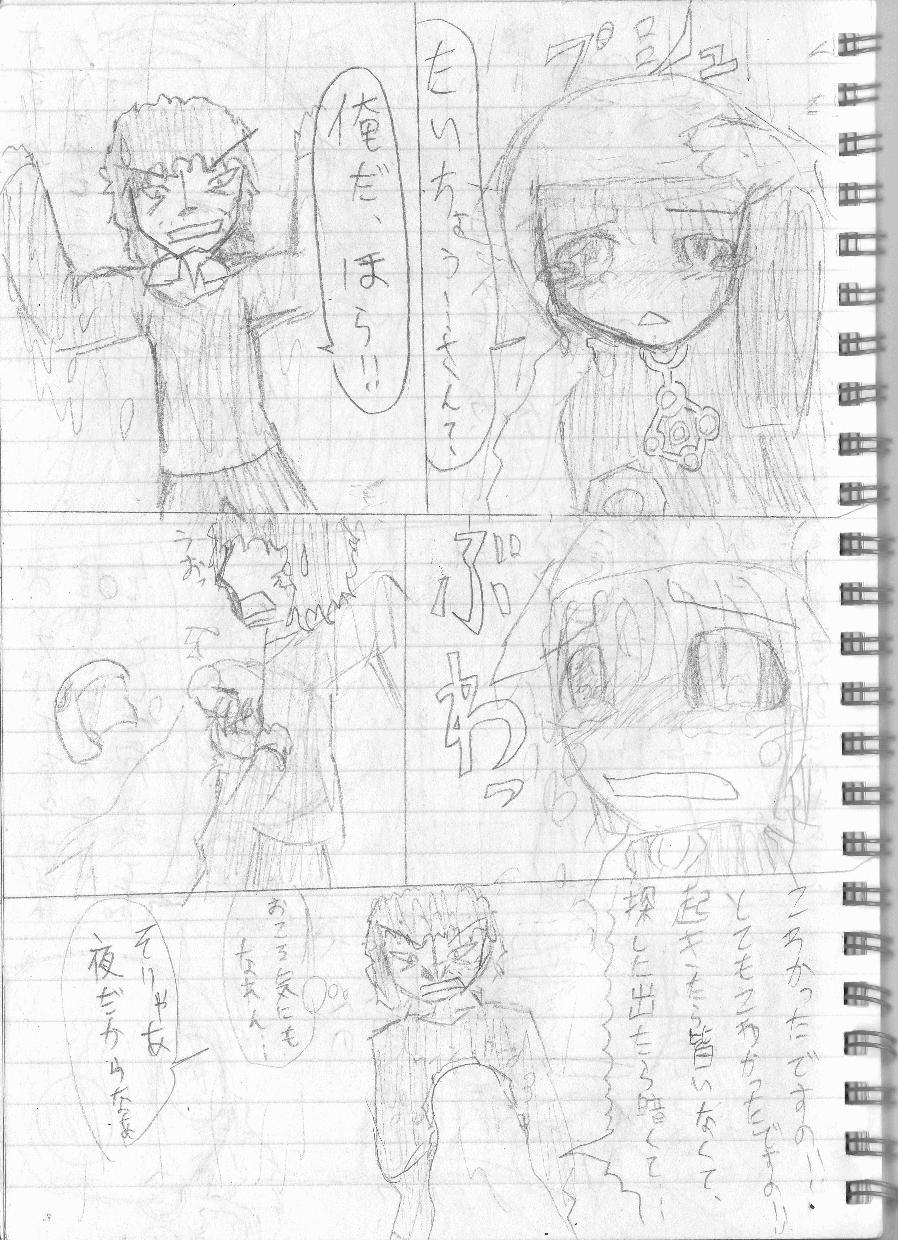 プシュ
たいちょう〜さんて、
俺だ、ほら!!
ぶわっ
おっ
こわかったですの!!!
とてもこわかったですの!!
起きたら皆いなくて、
探した出たら暗くて…
おこる気にも
なれん…
そりゃあ
夜だからなぁ